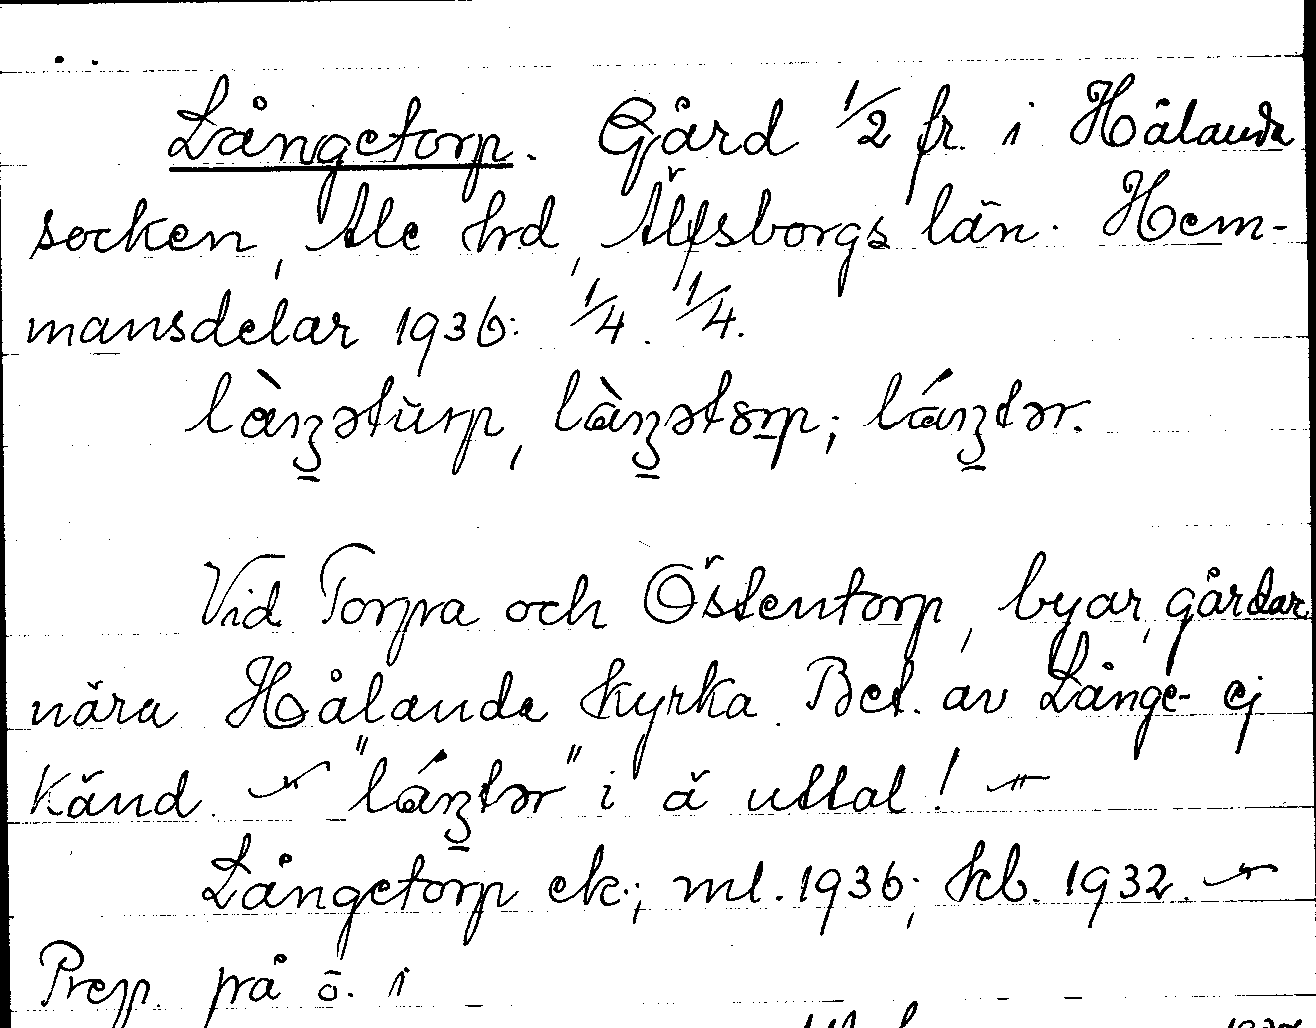 Långetorp. Gård 1/2 fr. i Hålanda
socken, Ale hrd, Älfsborgs län. Hem-
mansdelar 1936: 1/4. 1/4.
Vid Torpa och Östentorp, byar, gårdar
nära Hålanda kyrka. Bet. av Långe- ej
känd. i ä uttal!
Långetorp ek.; ml. 1936; kb. 1932.
Prep. på ö. i